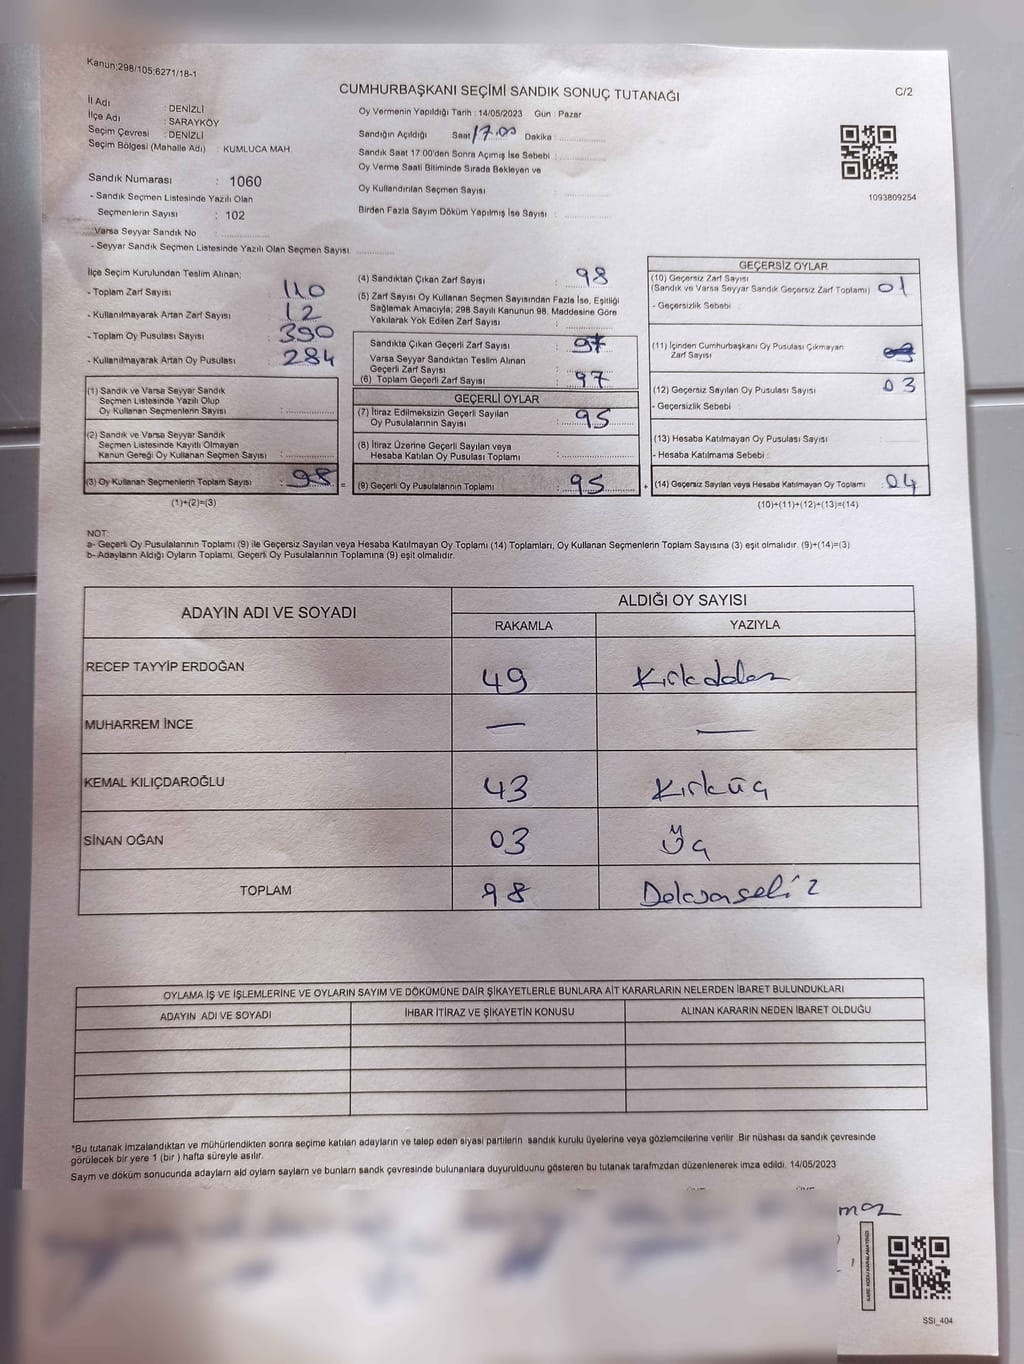 Kanun:298/105;6271/18-1
CUMHURBAŞKANI SEÇİMİ SANDIK SONUÇ TUTANAĞI
C/2
İl Adı : DENİZLİ
İlçe Adı : SARAYKÖY
Seçim Çevresi : DENİZLİ
Seçim Bölgesi (Mahalle Adı) : KUMLUCA MAH.
Sandık Numarası : 1060
- Sandık Seçmen Listesinde Yazılı Olan
Seçmenlerin Sayısı : 102
Varsa Seyyar Sandık No :
- Seyyar Sandık Seçmen Listesinde Yazılı Olan Seçmen Sayısı:
Oy Vermenin Yapıldığı Tarih : 14/05/2023 Gün : Pazar
Sandığın Açıldığı Saat 17.00 Dakika :
Sandık Saat 17:00'den Sonra Açımış İse Sebebi :
Oy Verme Saati Bitiminde Sırada Bekleyen ve
Oy Kullandırılan Seçmen Sayısı :
Birden Fazla Sayım Döküm Yapılmış İse Sayısı :
1093809254
İlçe Seçim Kurulundan Teslim Alınan;
- Toplam Zarf Sayısı : 110
- Kullanılmayarak Artan Zarf Sayısı : 12
- Toplam Oy Pusulası Sayısı : 390
- Kullanılmayarak Artan Oy Pusulası : 284
(1) Sandık ve Varsa Seyyar Sandık
Seçmen Listesinde Yazılı Olup
Oy Kullanan Seçmenlerin Sayısı :
(2) Sandık ve Varsa Seyyar Sandık
Seçmen Listesinde Kayıtlı Olmayan
Kanun Gereği Oy Kullanan Seçmen Sayısı :
(3) Oy Kullanan Seçmenlerin Toplam Sayısı : 98 =
(1)+(2)=(3)
(4) Sandıktan Çıkan Zarf Sayısı : 98
(5) Zarf Sayısı Oy Kullanan Seçmen Sayısından Fazla İse, Eşitliği
Sağlamak Amacıyla; 298 Sayılı Kanunun 98. Maddesine Göre
Yakılarak Yok Edilen Zarf Sayısı :
Sandıkta Çıkan Geçerli Zarf Sayısı : 97
Varsa Seyyar Sandıktan Teslim Alınan
Geçerli Zarf Sayısı :
(6) Toplam Geçerli Zarf Sayısı : 97
GEÇERLİ OYLAR
(7) İtiraz Edilmeksizin Geçerli Sayılan
Oy Pusulalarının Sayısı : 95
(8) İtiraz Üzerine Geçerli Sayılan veya
Hesaba Katılan Oy Pusulası Toplamı :
(9) Geçerli Oy Pusulalarının Toplamı : 95 +
GEÇERSİZ OYLAR
(10) Geçersiz Zarf Sayısı
(Sandık ve Varsa Seyyar Sandık Geçersiz Zarf Toplamı) : 01
- Geçersizlik Sebebi :
(11) İçinden Cumhurbaşkanı Oy Pusulası Çıkmayan
Zarf Sayısı
(12) Geçersiz Sayılan Oy Pusulası Sayısı : 03
- Geçersizlik Sebebi :
(13) Hesaba Katılmayan Oy Pusulası Sayısı :
- Hesaba Katılmama Sebebi :
(14) Geçersiz Sayılan veya Hesaba Katılmayan Oy Toplamı : 04
(10)+(11)+(12)+(13)=(14)
NOT:
a- Geçerli Oy Pusulalarının Toplamı (9) ile Geçersiz Sayılan veya Hesaba Katılmayan Oy Toplamı (14) Toplamları, Oy Kullanan Seçmenlerin Toplam Sayısına (3) eşit olmalıdır. (9)+(14)=(3)
b- Adayların Aldığı Oyların Toplamı, Geçerli Oy Pusulalarının Toplamına (9) eşit olmalıdır.
ADAYIN ADI VE SOYADI ALDIĞI OY SAYISI
RAKAMLA YAZIYLA
RECEP TAYYİP ERDOĞAN 49
MUHARREM İNCE — —
KEMAL KILIÇDAROĞLU 43 Kırküç
SİNAN OĞAN 03 Üç
TOPLAM 98 Doksansekiz
OYLAMA İŞ VE İŞLEMLERİNE VE OYLARIN SAYIM VE DÖKÜMÜNE DAİR ŞİKAYETLERLE BUNLARA AİT KARARLARIN NELERDEN İBARET BULUNDUKLARI
ADAYIN ADI VE SOYADI İHBAR İTİRAZ VE ŞİKAYETİN KONUSU ALINAN KARARIN NEDEN İBARET OLDUĞU
*Bu tutanak imzalandıktan ve mühürlendikten sonra seçime katılan adayların ve talep eden siyasi partilerin sandık kurulu üyelerine veya gözlemcilerine verilir .Bir nüshası da sandık çevresinde
görülecek bir yere 1 (bir ) hafta süreyle asılır.
Saym ve döküm sonucunda adayların ald oyların sayların ve bunların sandk çevresinde bulunanlara duyurulduunu gösteren bu tutanak tarafmzdan düzenlenerek imza edildi. 14/05/2023
SSI_404